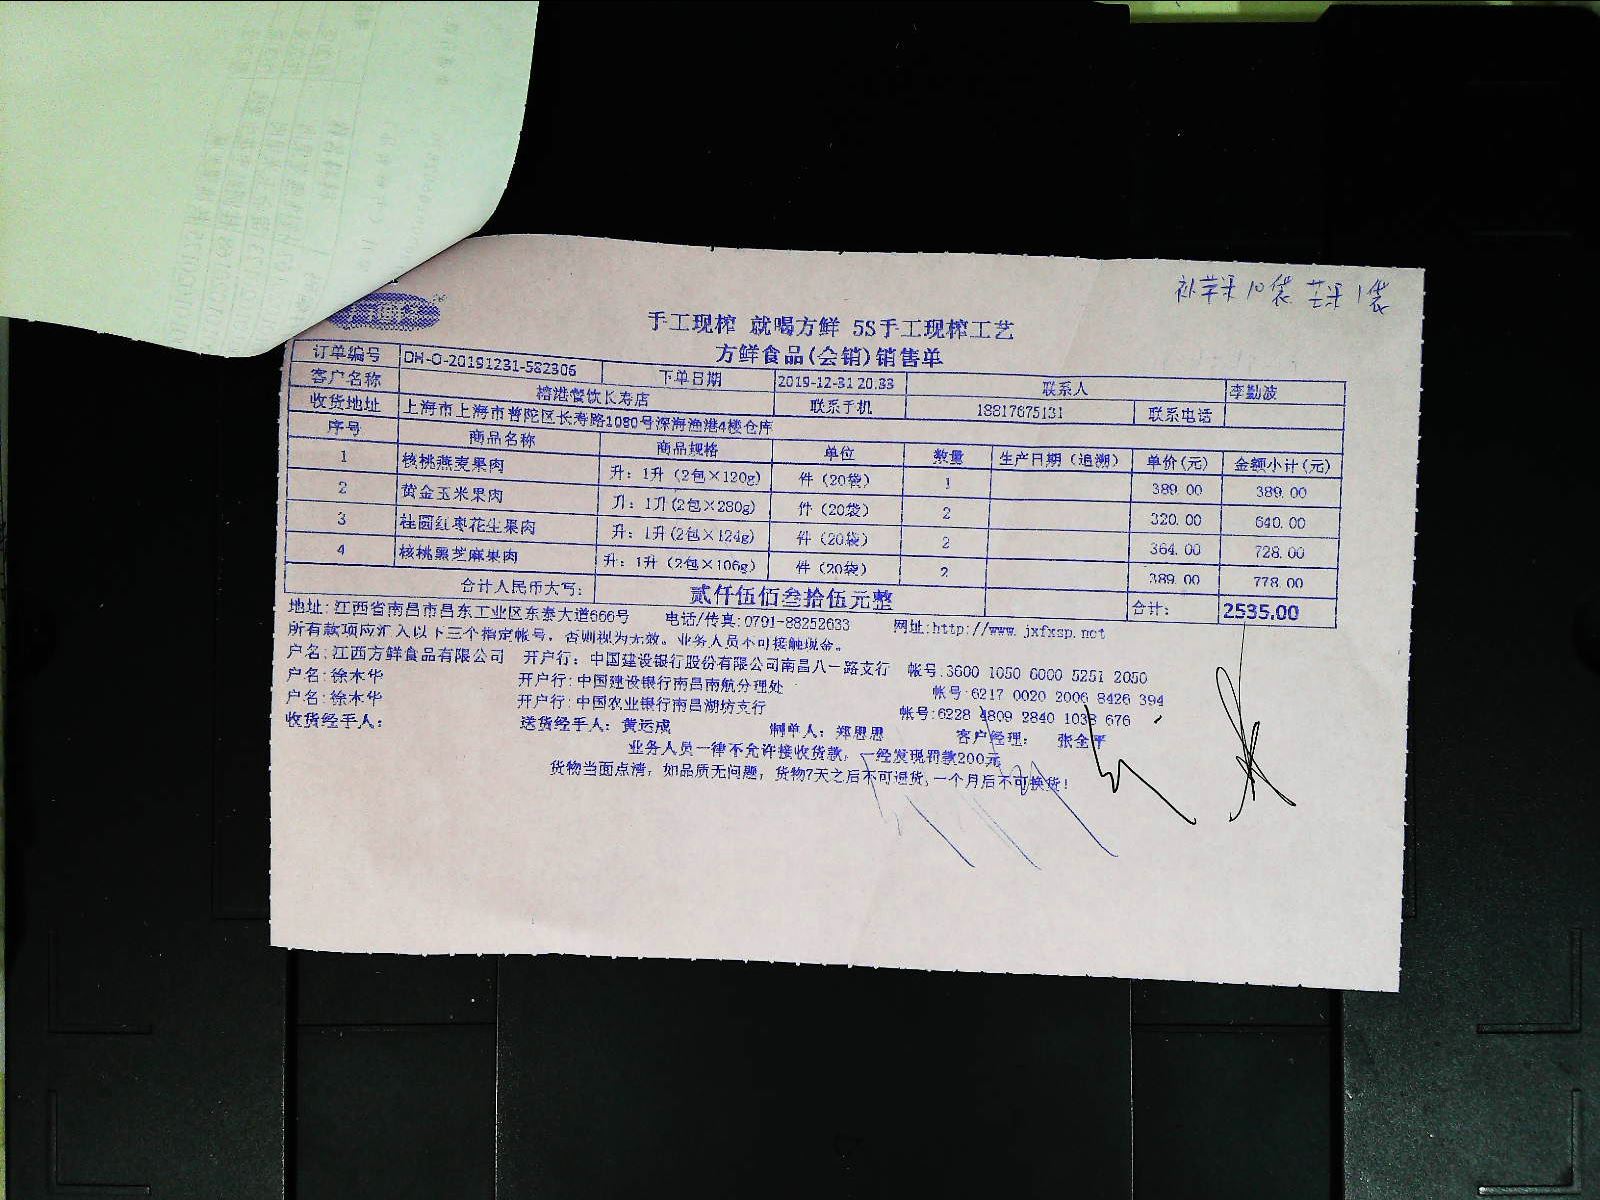 补苹果10袋 芒果1袋
手工现榨 就喝方鲜 5S手工现榨工艺
方鲜食品(会销)销售单
订单编号 DH-O-20191231-582306 下单日期 2019-12-31 20:33 联系人 李勤波
客户名称 榕港餐饮长寿店 联系手机 18817675131 联系电话
收货地址 上海市上海市普陀区长寿路1080号深海渔港4楼仓库
序号 商品名称 商品规格 单位 数量 生产日期（追溯） 单价(元) 金额小计(元)
1 核桃燕麦果肉 升：1升（2包×120g） 件（20袋） 1 389.00 389.00
2 黄金玉米果肉 升：1升(2包×280g) 件（20袋） 2 320.00 640.00
3 桂圆红枣花生果肉 升：1升(2包×124g) 件（20袋） 2 364.00 728.00
4 核桃黑芝麻果肉 升：1升（2包×106g） 件（20袋） 2 389.00 778.00
合计人民币大写： 贰仟伍佰叁拾伍元整 合计： 2535.00
地址:江西省南昌市昌东工业区东泰大道666号 电话/传真:0791-88252633 网址:http://www.jxfxsp.net
所有款项应汇入以下三个指定帐号，否则视为无效。业务人员不可接触现金。
户名:江西方鲜食品有限公司 开户行：中国建设银行股份有限公司南昌八一路支行 帐号:3600 1050 6000 5251 2050
户名:徐木华 开户行:中国建设银行南昌南航分理处 帐号:6217 0020 2006 8426 394
户名:徐木华 开户行:中国农业银行南昌湖坊支行 帐号:6228 4809 2840 1038 676
收货经手人： 送货经手人：黄远成 制单人：郑思思 客户经理： 张金平
业务人员一律不允许接收货款，一经发现罚款200元
货物当面点清，如品质无问题，货物7天之后不可退货,一个月后不可换货!